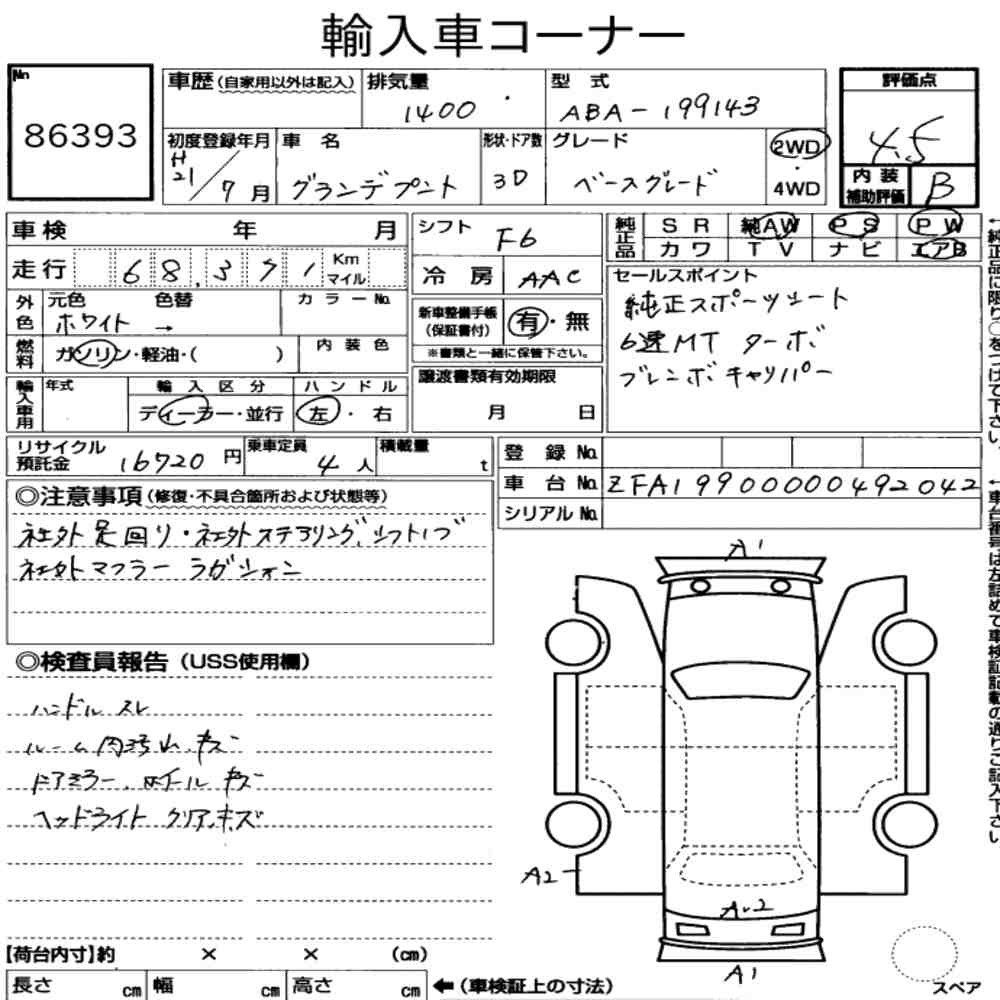 輸入車コーナー
No.
86393
車歴(自家用以外は記入)
排気量
1400
型 式
ABA-199143
評価点
4.5
初度登録年月
H
21/7月
車 名
グランデプント
形状・ドア数
3D
グレード
ベースグレード
2WD
・
4WD
内 装
補助評価
B
車検 年 月
シフト
F6
純正品
S R
純AW
P S
P W
カ ワ
T V
ナ ビ
エアB
←純正品に限り○をつけて下さい。
走行 68,371 Km マイル
冷 房
AAC
セールスポイント
純正スポーツシート
6速MT ターボ
ブレンボキャリパー
外色
元色 色替
ホワイト →
カラーNo.
新車整備手帳
(保証書付)
有・無
※書類と一緒に保管下さい。
燃料
ガソリン・軽油・( )
内 装 色
譲渡書類有効期限
月 日
輸入車用
年式
輸 入 区 分
ディーラー・並行
ハ ン ド ル
左・右
リサイクル
預託金
16720円
乗車定員
4人
積載量
t
登 録 No.
車 台 No.
ZFA19900000492042
シリアル No.
←車台番号は左詰めで車検証記載の通りご記入下さい。
◎注意事項(修復・不具合箇所および状態等)
社外足回り・社外ステアリング、シフトノブ
社外マフラー ラグジョン
◎検査員報告(USS使用欄)
ハンドル スレ
ルーム内汚れ、キズ
ドアミラー、ホイール キズ
ヘッドライト クリア、キズ
A1
A2
A2
A1
スペア
【荷台内寸】約 × × (cm)
長さ cm 幅 cm 高さ cm ←(車検証上の寸法)